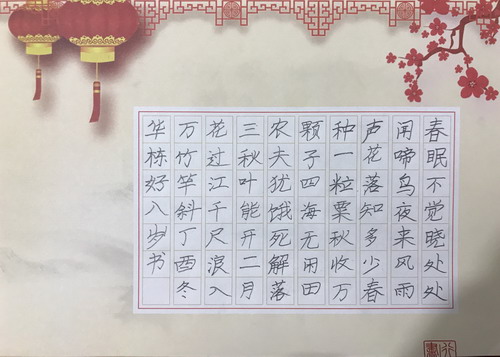 春眠不觉晓处处
闻啼鸟夜来风雨
声花落知多少春
种一粒粟秋收万
颗子四海无闲田
农夫犹饿死解落
三秋叶能开二月
花过江千尺浪入
万竹竿斜丁酉冬
华栋好八岁书